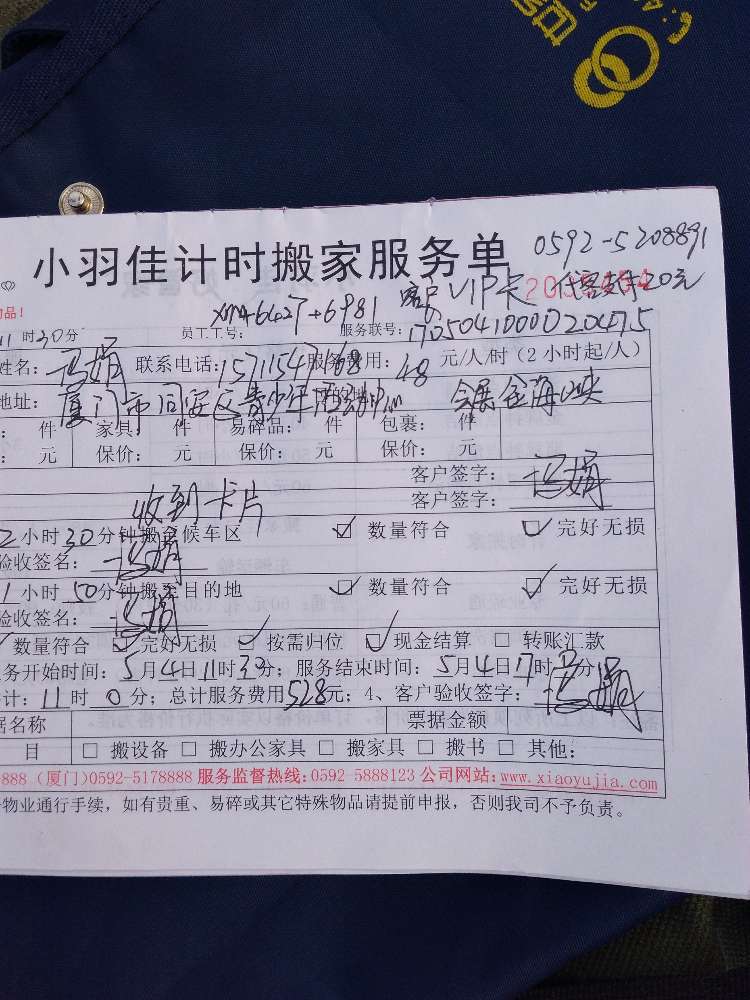 0592-5208891
小羽佳计时搬家服务单
客户VIP卡
代客支付20元
物品!
11时30分 员工工号: XM46427+6981 服务联号: 170504100020475
姓名: 冯娟 联系电话: 15711547168 服务费用: 48 元/人/时(2小时起/人)
地址: 厦门市同安区青少年活动中心 目的地 会展金海峡
: 件 家具: 件 易碎品: 件 包裹: 件
: 元 保价: 元 保价: 元 保价: 元
客户签字: 冯娟
收到卡片 客户签字:
2小时30分钟搬至候车区 ☑ 数量符合 ☑ 完好无损
验收签名: 冯娟
1小时50分钟搬至目的地 ☑ 数量符合 ☑ 完好无损
验收签名: 冯娟
数量符合 ☑ 完好无损 ☑ 按需归位 ☑ 现金结算 □ 转账汇款
务开始时间: 5月4日11时30分; 服务结束时间: 5月4日17时分
计: 11时0分; 总计服务费用528元; 4、客户验收签字: 冯娟
据名称 票据金额
目 □ 搬设备 □ 搬办公家具 □ 搬家具 □ 搬书 □ 其他:
888 (厦门)0592-5178888 服务监督热线:0592-5888123 公司网站:www.xiaoyujia.com
物业通行手续, 如有贵重、易碎或其它特殊物品请提前申报, 否则我司不予负责。